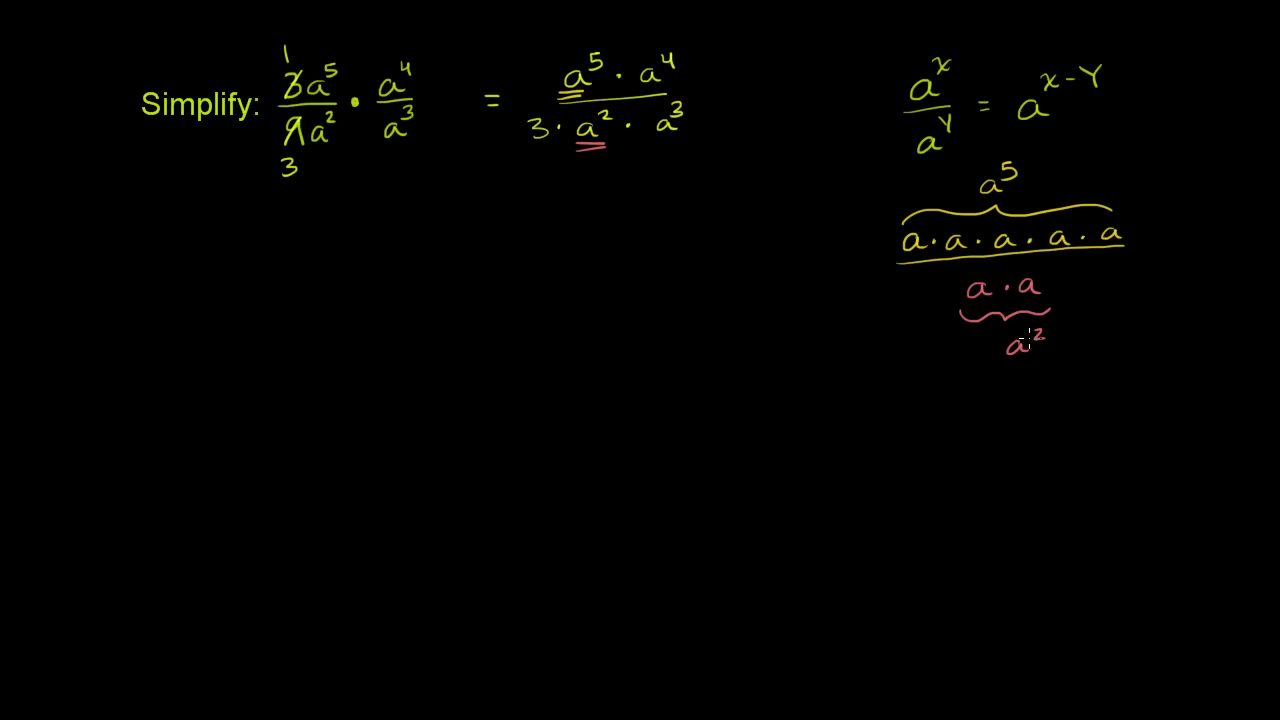 Simplify: 3a⁵/9a² • a⁴/a³ = a⁵ · a⁴ / 3 · a² · a³
1
3
aˣ/aʸ = aˣ⁻ʸ
a⁵
a · a · a · a · a
a · a
a²